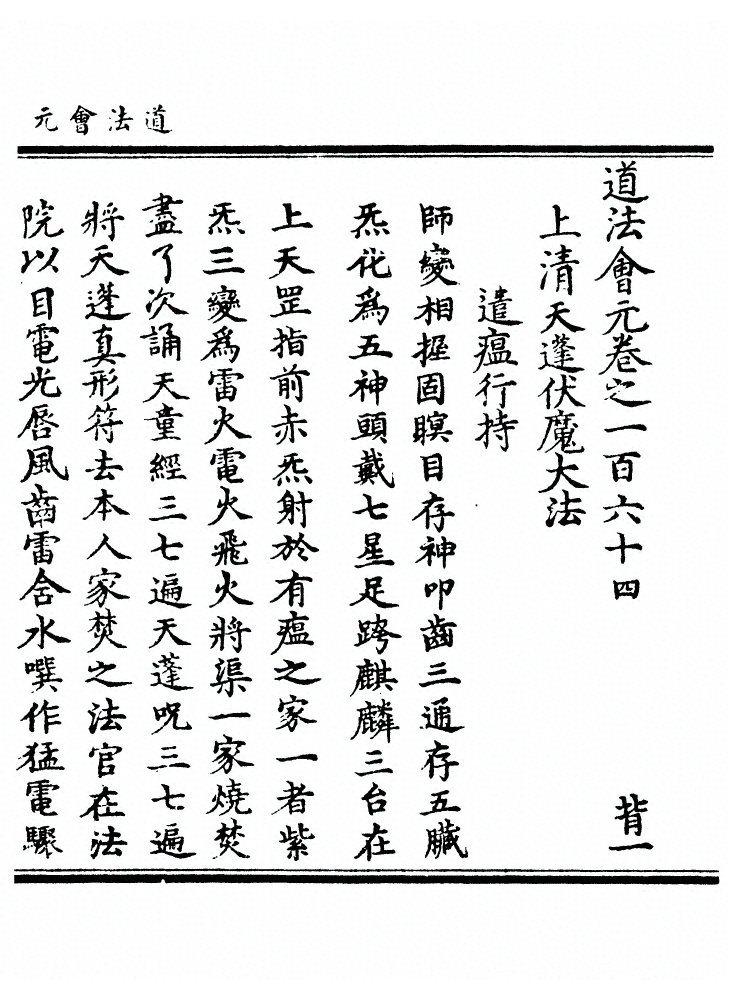 道法會元
道法會元卷之一百六十四
背一
上清天蓬伏魔大法
遣瘟行持
師變相握固瞑目存神叩齒三通存五臟
炁化爲五神頭戴七星足跨麒麟三台在
上天罡指前赤炁射於有瘟之家一者紫
炁三變爲雷火電火飛火將渠一家燒焚
盡了次誦天童經三七遍天蓬呪三七遍
將天蓬真形符去本人家焚之法官在法
院以目電光唇風齒雷含水噀作猛電驟